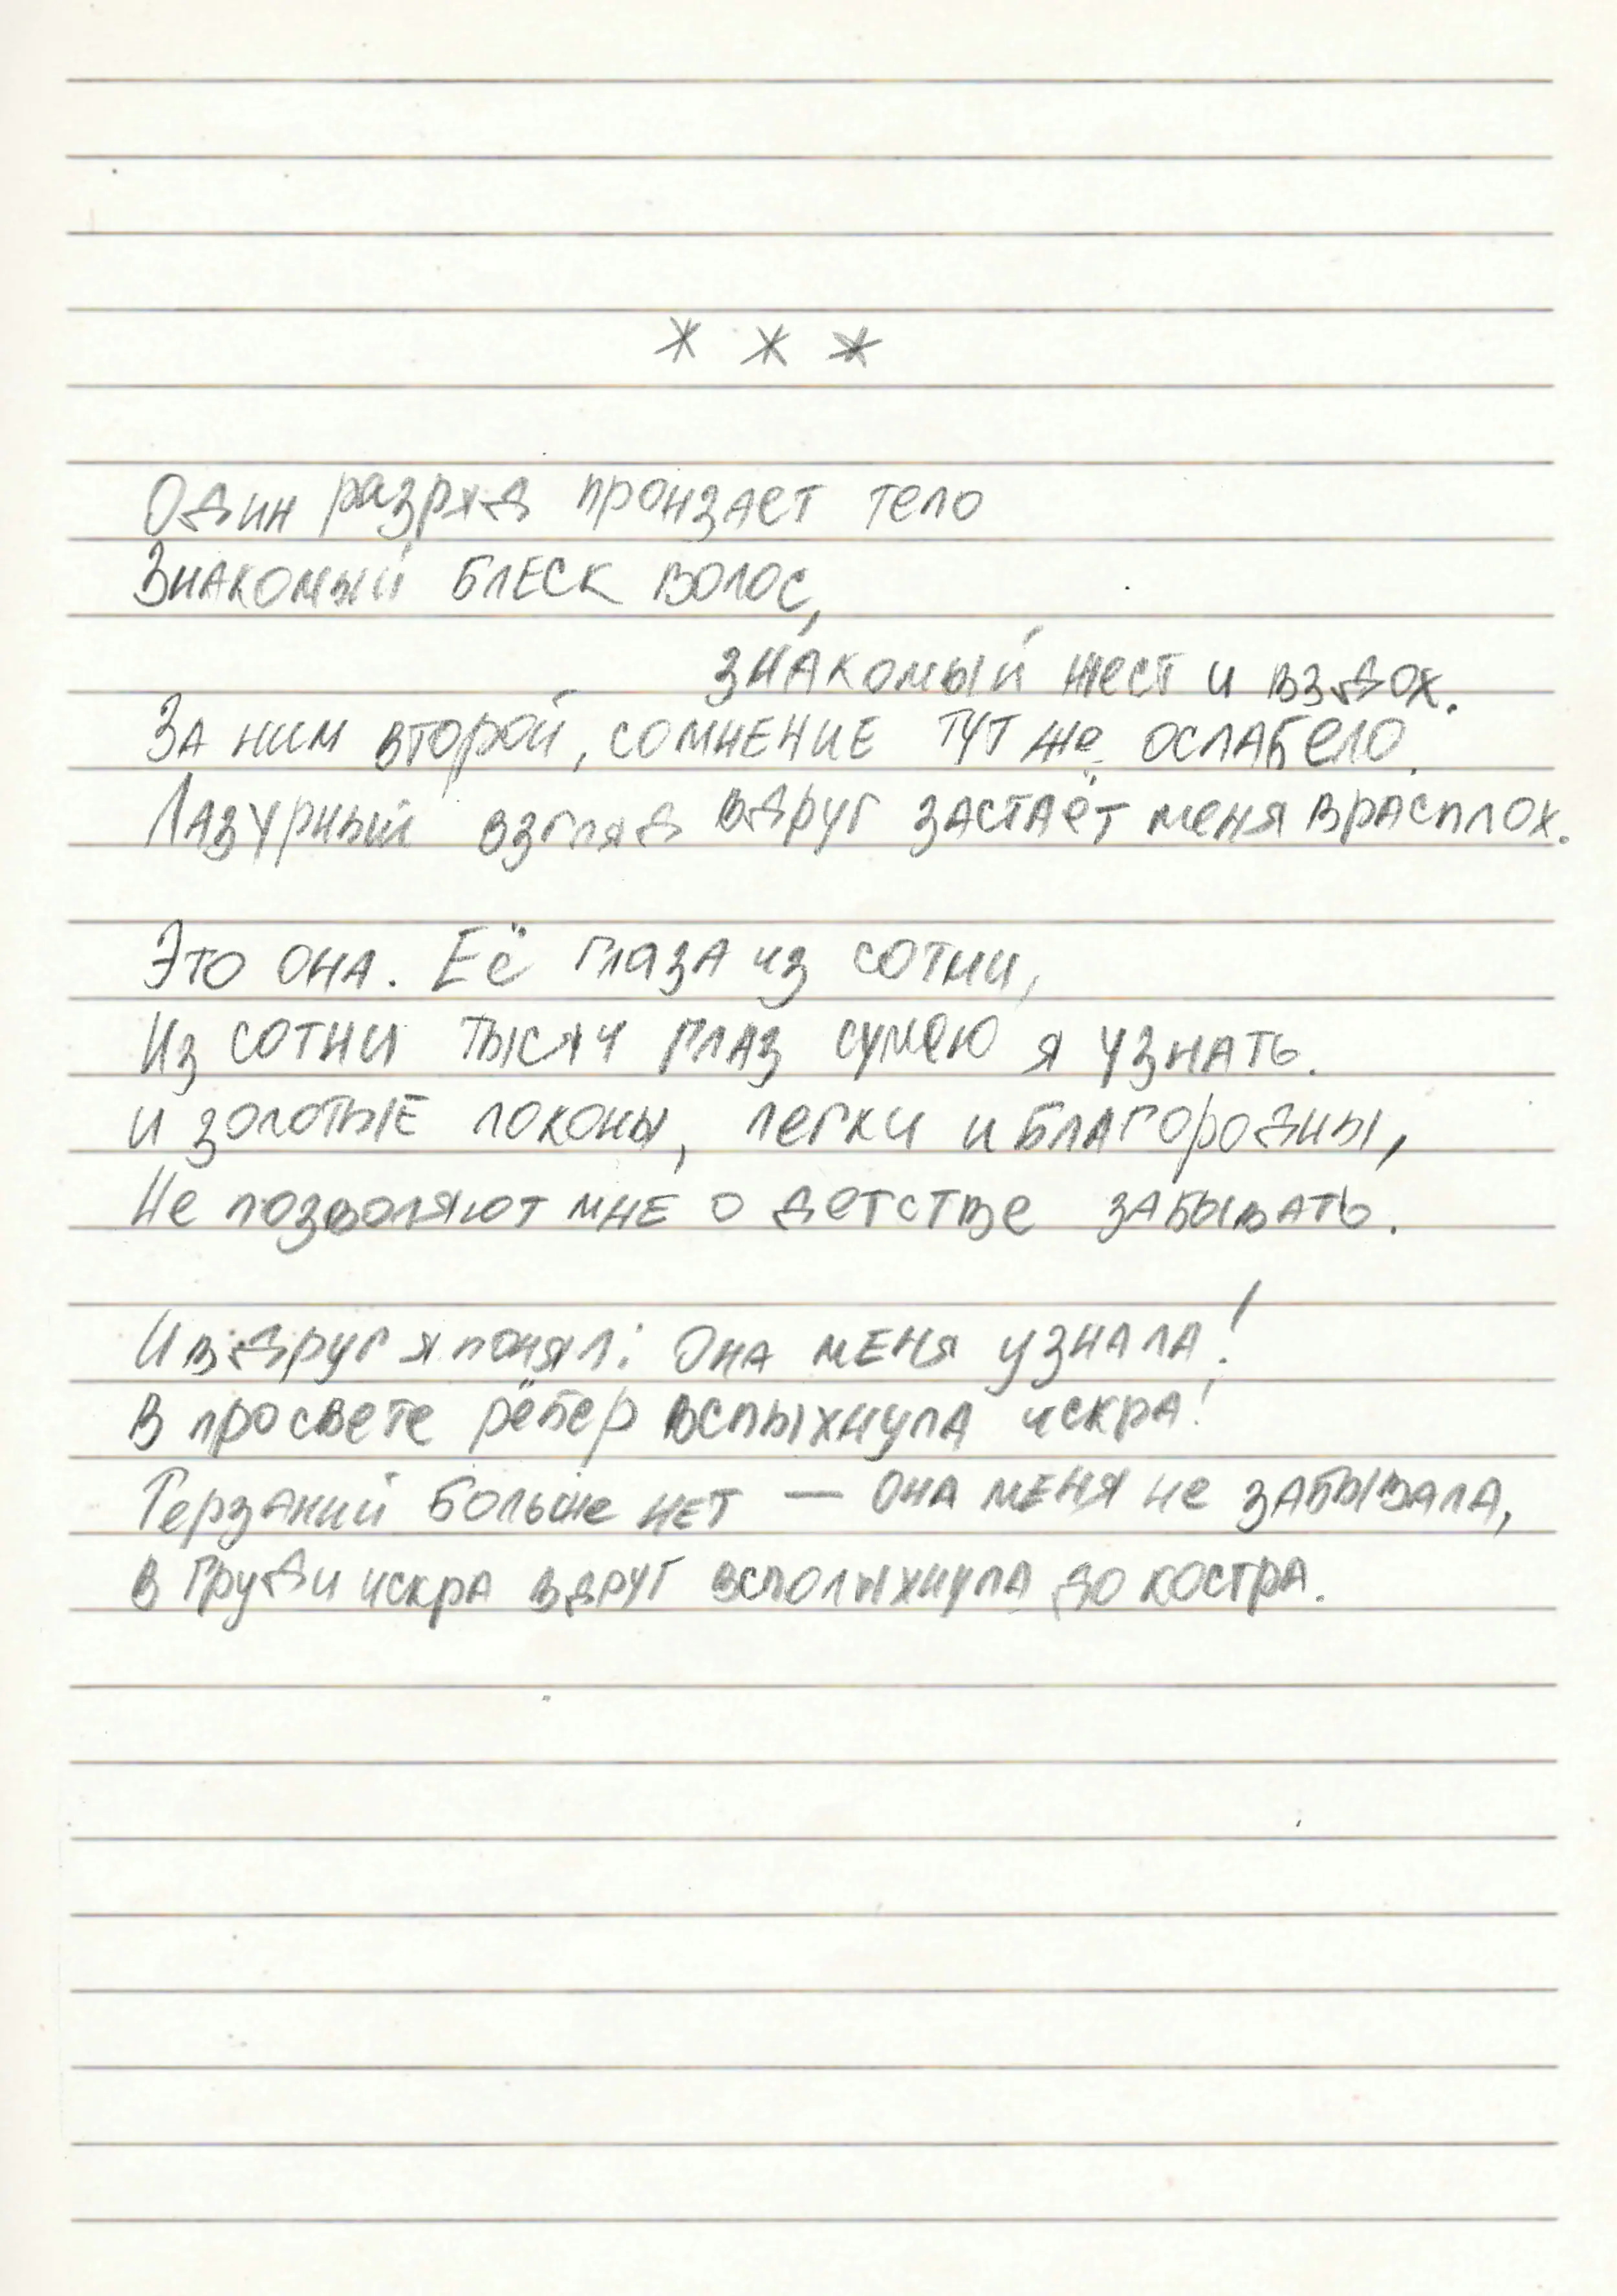 * * *
Один разряд пронзает тело
Знакомый блеск волос,
знакомый жест и вздох.
За ним второй, сомнение тут же ослабело.
Лазурный взгляд вдруг застаёт меня врасплох.
Это она. Её глаза из сотни,
Из сотни тысяч глаз сумею я узнать.
И золотые локоны, легки и благородны,
Не позволяют мне о детстве забывать.
И вдруг я понял: Она меня узнала!
В просвете рёбер вспыхнула искра!
Терзаний больше нет — она меня не забывала,
В груди искра вдруг всполыхнула до костра.